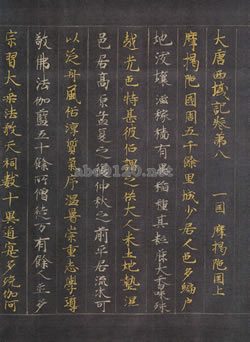 大唐西域記卷第八
一國 摩揭陀國上
摩揭陀國周五千餘里城少居人邑多編戶
地沃壤滋稼穡有異稻種其粒麤大香味殊
越光色特甚彼俗謂之供大人米土地墊濕
邑居高原孟夏之後仲秋之前平居流水可
以泛舟風俗淳質氣序溫暑崇重志學尊
敬佛法伽藍五十餘所僧徒萬有餘人並多
宗習大乘法教天祠數十異道寔多殑伽河